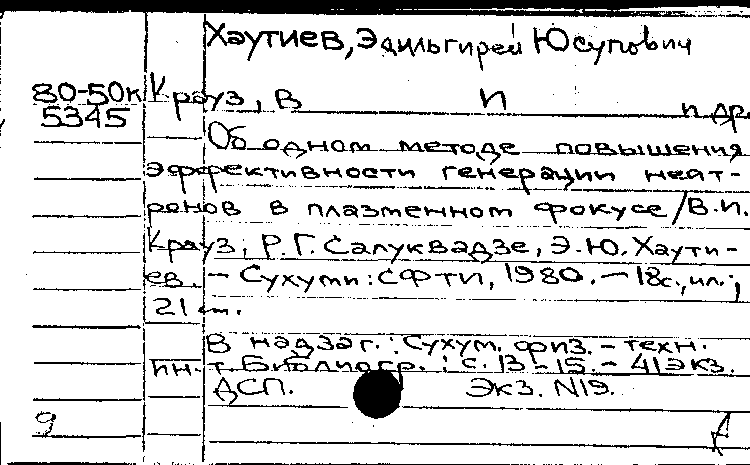 Хаутиев, Эдильгирей Юсупович
80-50к Крауз, В П и др.
5345
Об одном методе повышения
эффективности генерации нейт-
ронов в плазменном фокусе / В.И.
Крауз, Р.Г. Салуквадзе, Э.Ю. Хаути-
ев. – Сухуми: СФТИ, 1980. – 18с., ил.;
21 см.
В надзаг.: Сухум. физ.-техн.
ин-т. Библиогр.: с. 13-15. – 41 экз.
ДСП. Экз. N19.
9